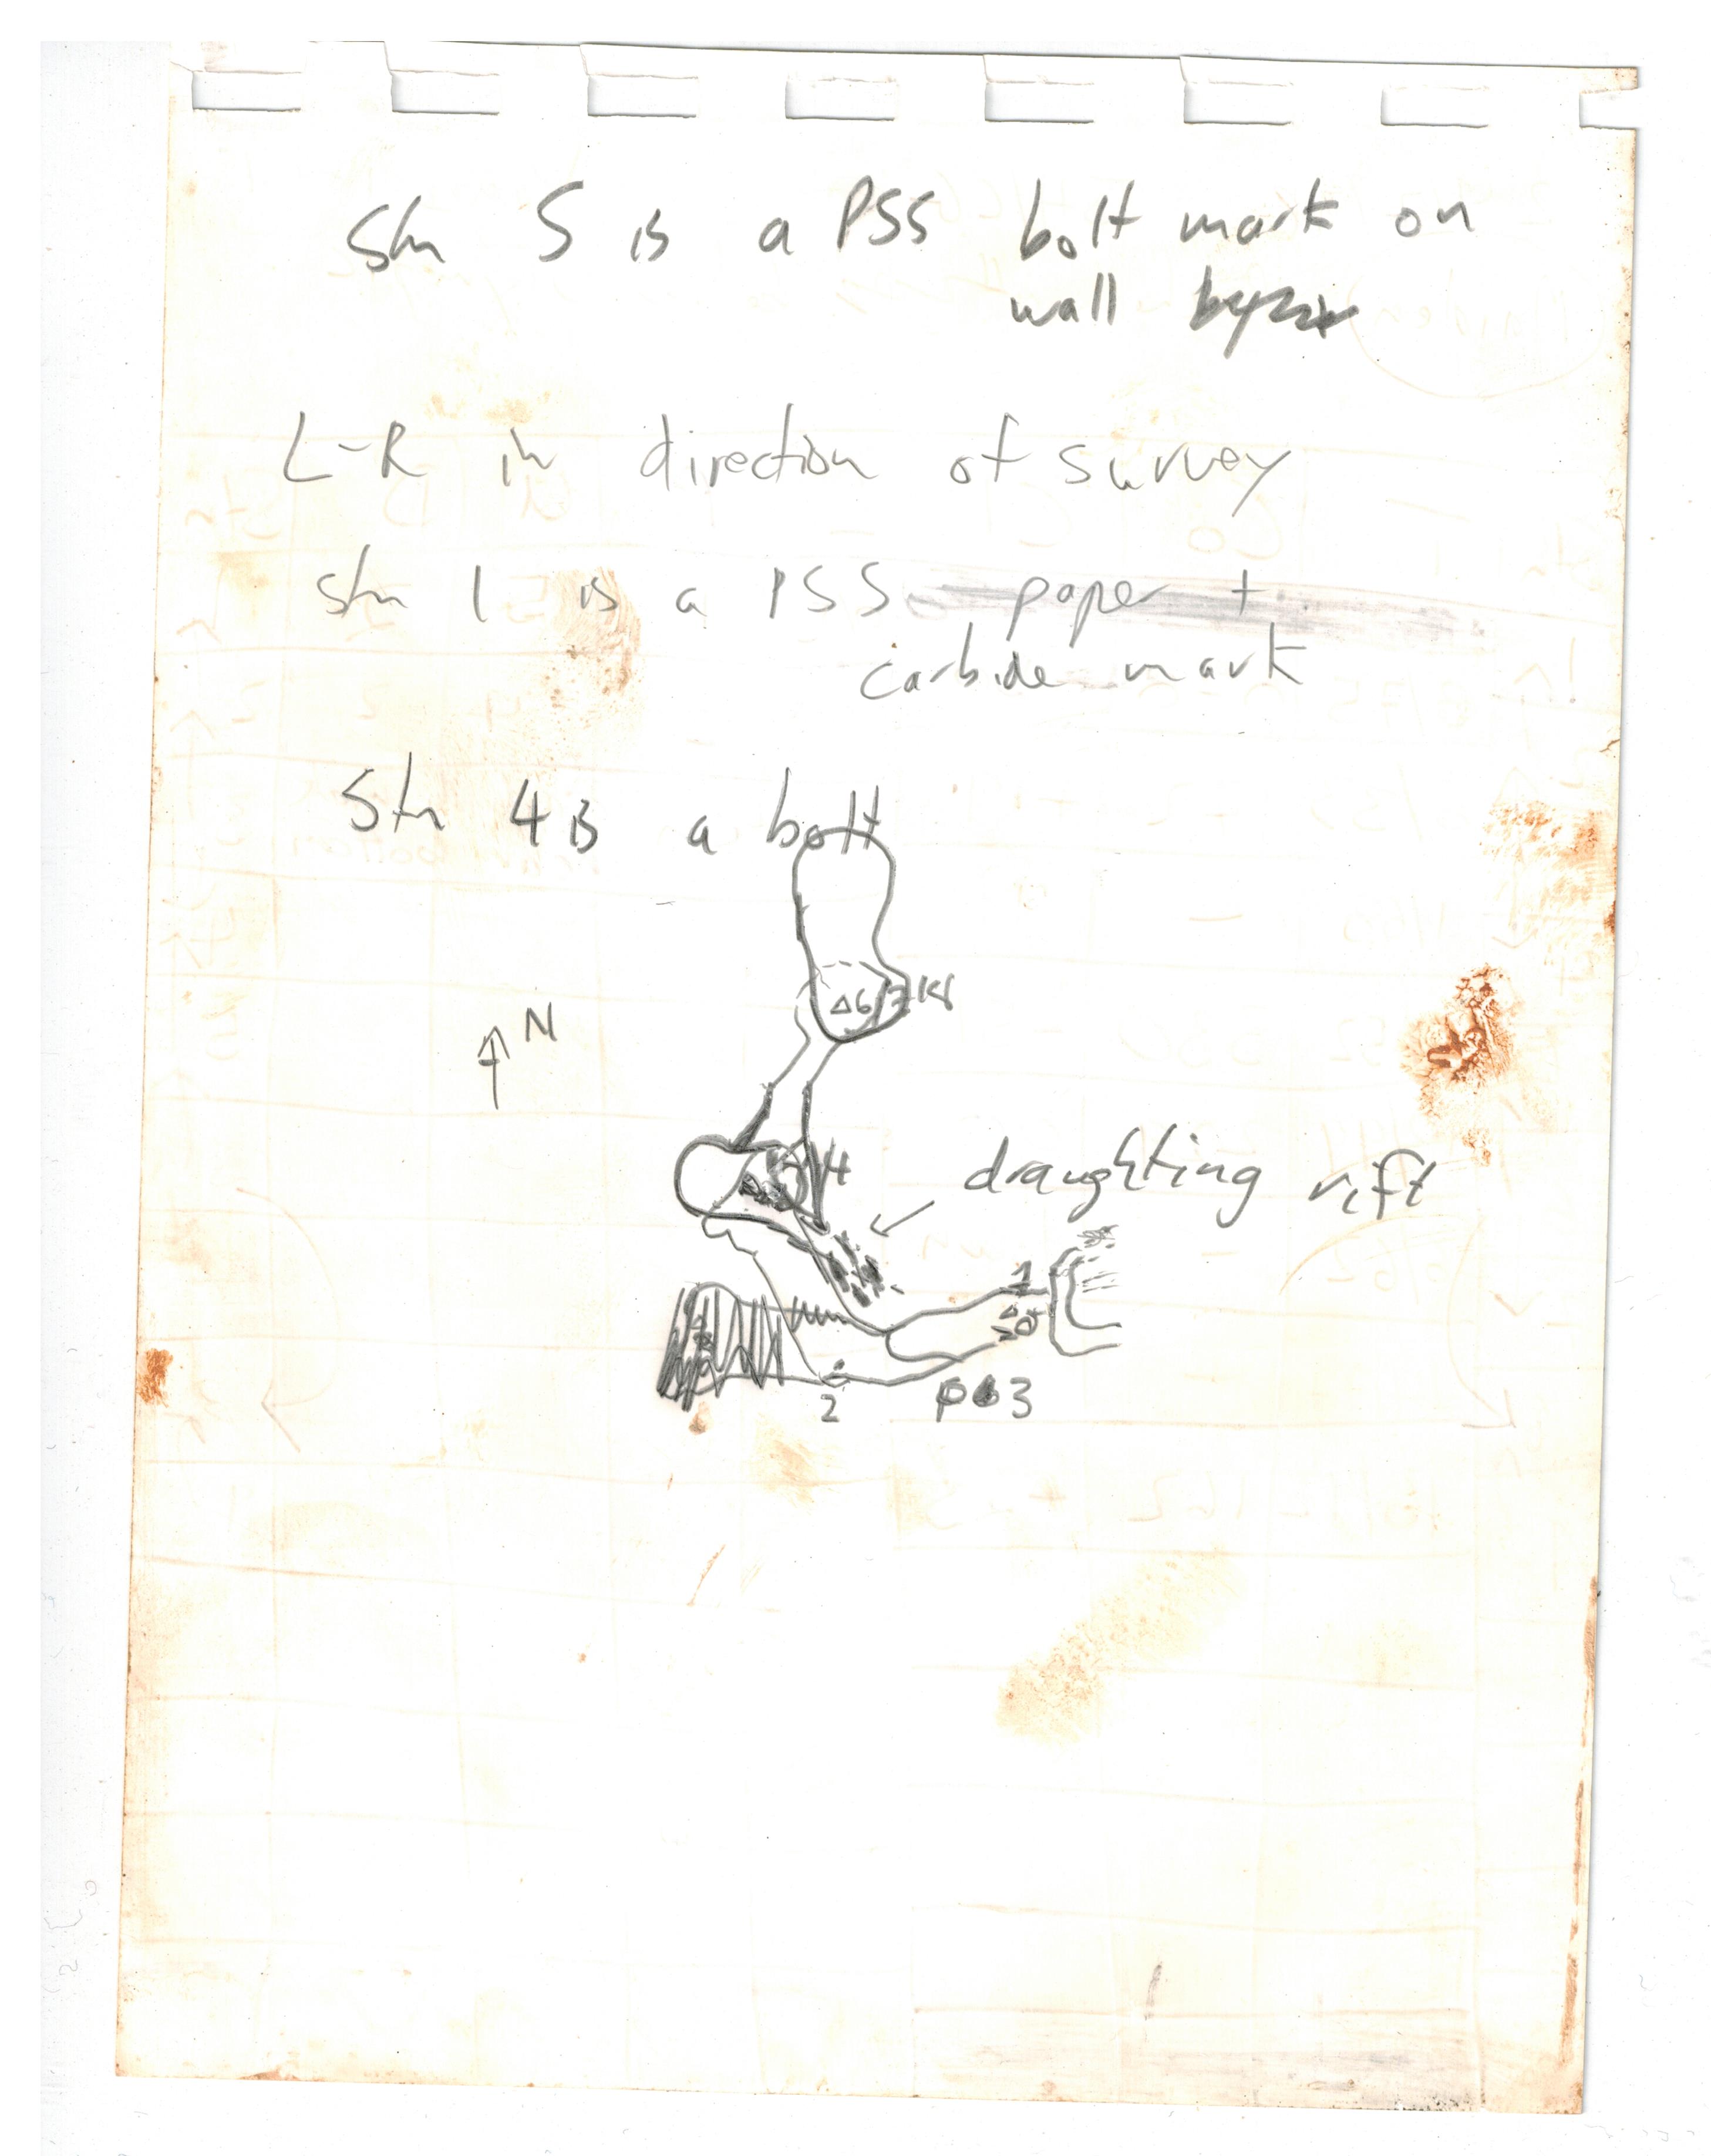 Stn 5 is a PSS bolt mark on
wall
L-R in direction of survey
stn 1 is a PSS paper +
carbide mark
Stn 4 is a bolt
6/7
N
4
draughting rift
1
2
3